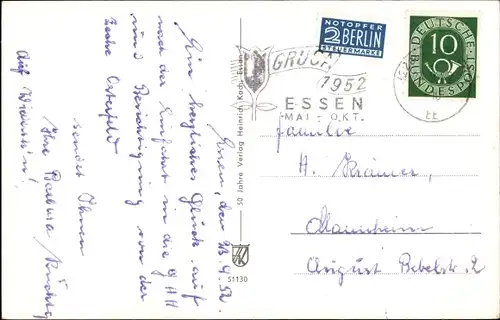 NOTOPFER
2 BERLIN
STEUERMARKE
DEUTSCHE
BUNDESPOST
10
GRUGA
1952
ESSEN
MAI - OKT.
EE
Familie
H. Krämer,
Mannheim
August Bebelstr. 2
50 Jahre Verlag Heinrich Koch, Essen
51130
den 23.4.52.
Ein herzliches Glück auf
nach der Einfahrt in die GHH
und Besichtigung von der
Zeche Osterfeld
sendet Ihnen
Ihre Barbara
Auf Wiedersehn!